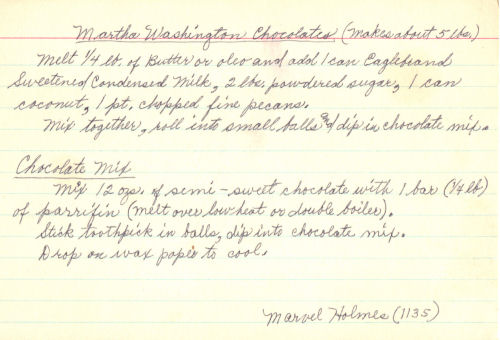 Martha Washington Chocolates (Makes about 5 lbs.)
Melt 1/4 lb. of Butter or oleo and add 1 can Eaglebrand
Sweetened Condensed Milk, 2 lbs. powdered sugar, 1 can
coconut, 1 pt. chopped fine pecans.
Mix together, roll into small balls and dip in chocolate mix.
Chocolate Mix
Mix 12 ozs. of semi-sweet chocolate with 1 bar (1/4 lb)
of parrifin (melt over low heat or double boiler).
Stick toothpick in balls, dip into chocolate mix.
Drop on wax paper to cool.
Marvel Holmes (1135)